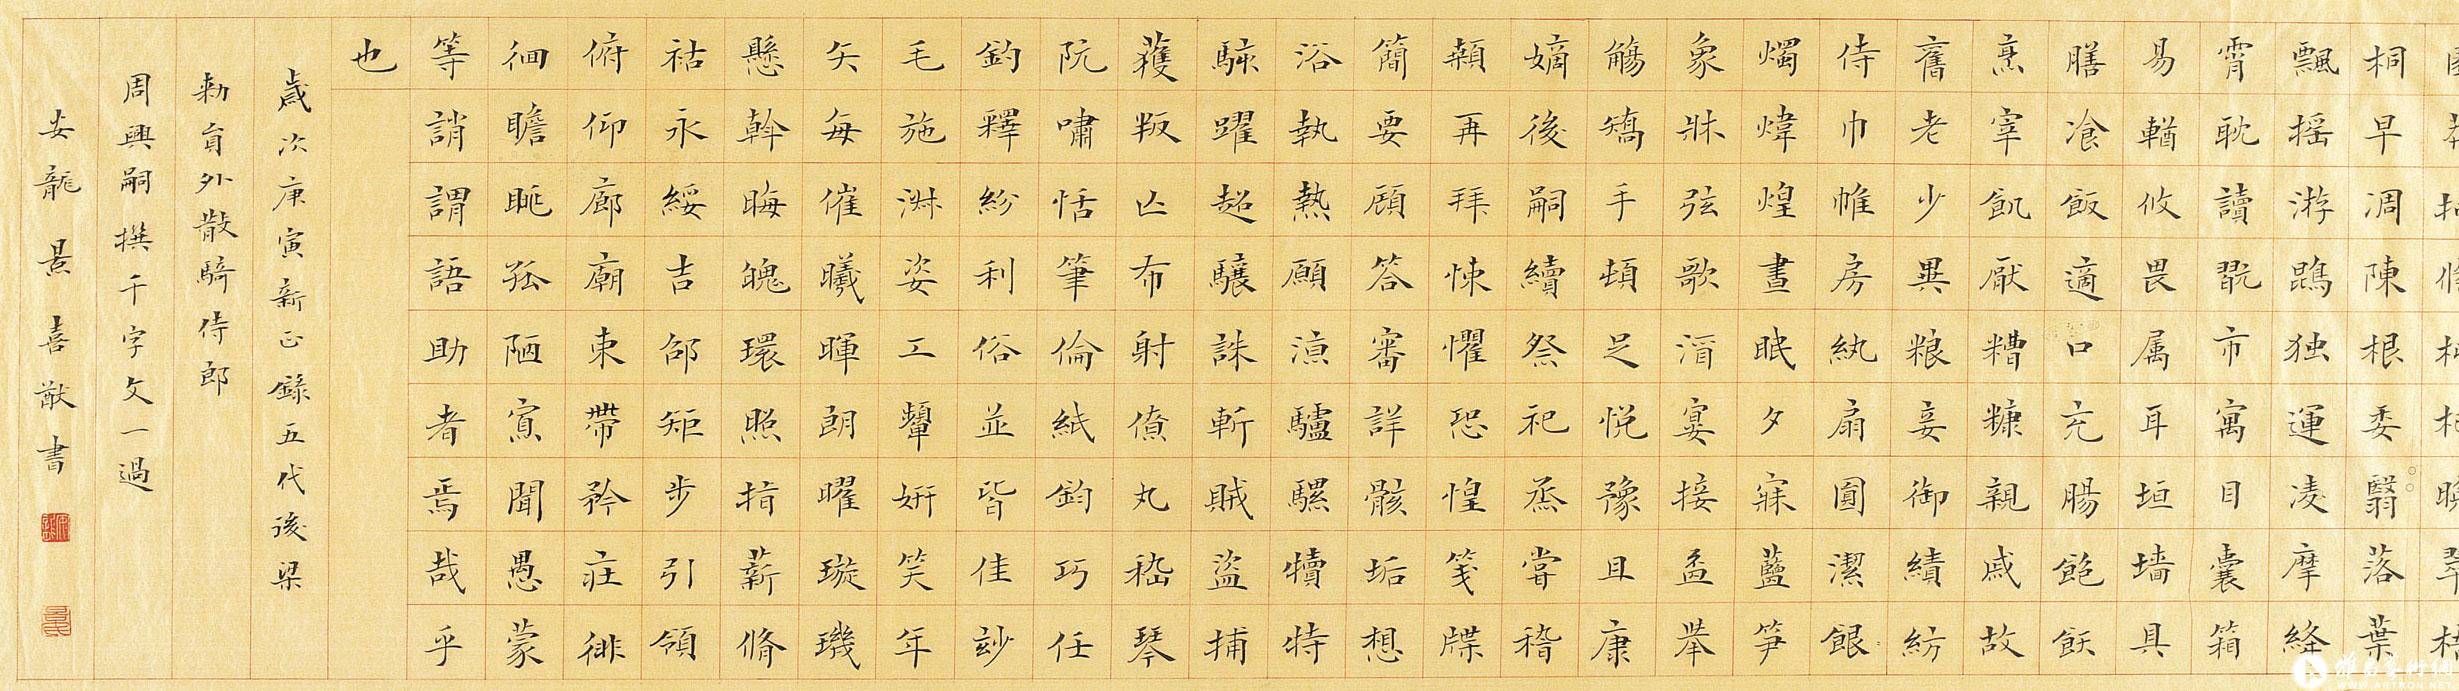 桐早凋陳根委翳落葉
飄搖游鵾独運凌摩絳
霄耽讀翫市寓目囊箱
易輶攸畏属耳垣墻具
膳飡飯適口充腸飽飫
烹宰飢厭糟糠親戚故
舊老少異粮妾御績紡
侍巾帷房紈扇圓潔銀
燭煒煌晝眠夕寐藍笋
象牀弦歌酒宴接盃舉
觴矯手頓足悅豫且康
嫡後嗣續祭祀蒸嘗稽
顙再拜悚懼恐惶箋牒
簡要顧答審詳骸垢想
浴執熱願凉驢騾犢特
駭躍超驤誅斬賊盜捕
獲叛亡布射僚丸嵇琴
阮嘯恬筆倫紙鈞巧任
釣釋紛利俗並皆佳妙
毛施淑姿工顰妍笑年
矢每催曦暉朗曜璇璣
懸斡晦魄環照指薪脩
祜永綏吉邵矩步引領
俯仰廊廟束帶矜莊徘
徊瞻眺孤陋寡聞愚蒙
等誚謂語助者焉哉乎
也
歲次庚寅新正錄五代後梁
勅員外散騎侍郎
周興嗣撰千字文一過
安龍景喜猷書